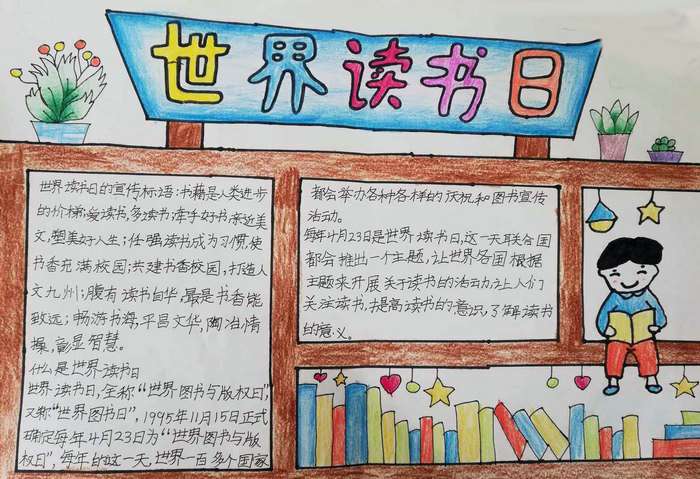 世界读书日
世界读书日的宣传标语:书籍是人类进步
的价梯;爱读书,多读书,牵手好书,亲近美
文,塑美好人生;任强读书成为习惯,使
书香充满校园;共建书香校园,打造人
文九州;腹有读书自华,最是书香能
致远;畅游书海,平昌文华,陶冶情
操,彰显智慧。
什么是世界读书日
世界读书日,全称“世界图书与版权日”,
又称“世界图书日”,1995年11月15日正式
确定每年4月23日为“世界图书与版
权日”,每年的这一天,世界一百多个国家
都会举办各种各样的庆祝和图书宣传
活动。
每年4月23日是世界读书日,这一天联合国
都会推出一个主题,让世界各国根据
主题来开展关于读书的活动,让人们
关注读书,提高读书的意识,了解读书
的意义。